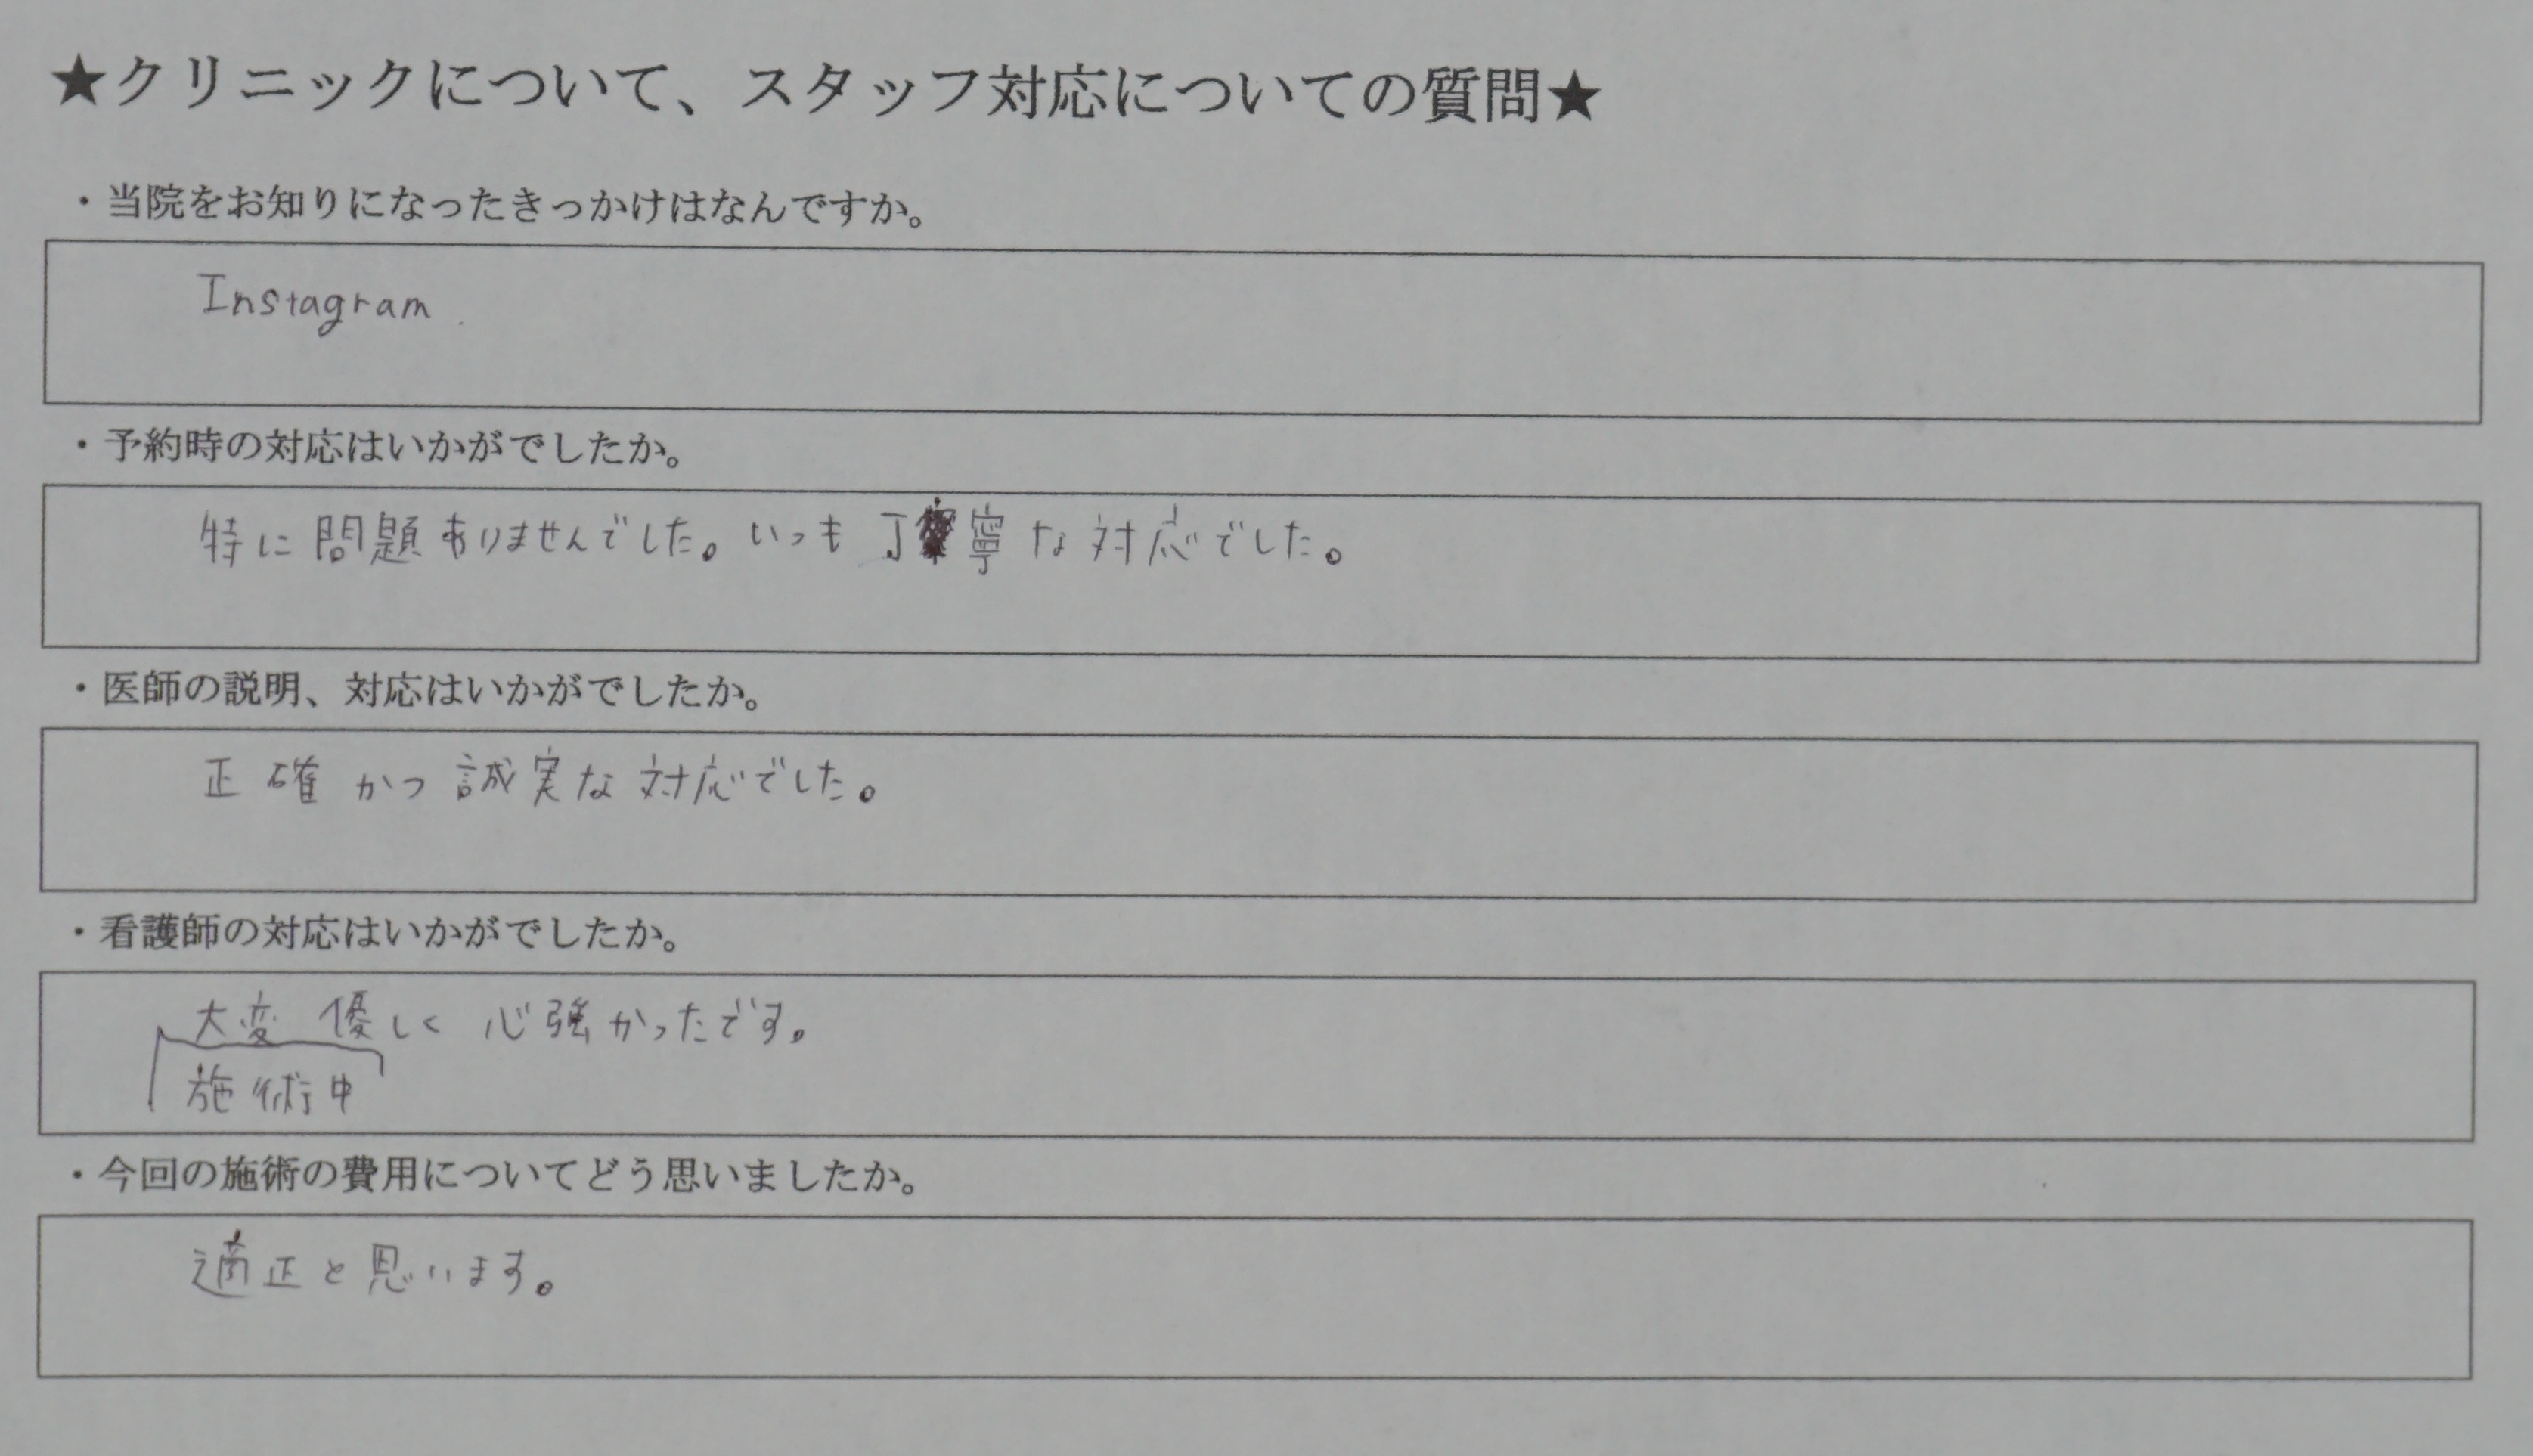 ★クリニックについて、スタッフ対応についての質問★
・当院をお知りになったきっかけはなんですか。
Instagram
・予約時の対応はいかがでしたか。
特に問題ありませんでした。いつも丁寧な対応でした。
・医師の説明、対応はいかがでしたか。
正確かつ誠実な対応でした。
・看護師の対応はいかがでしたか。
大変優しく心強かったです。
施術中
・今回の施術の費用についてどう思いましたか。
適正と思います。